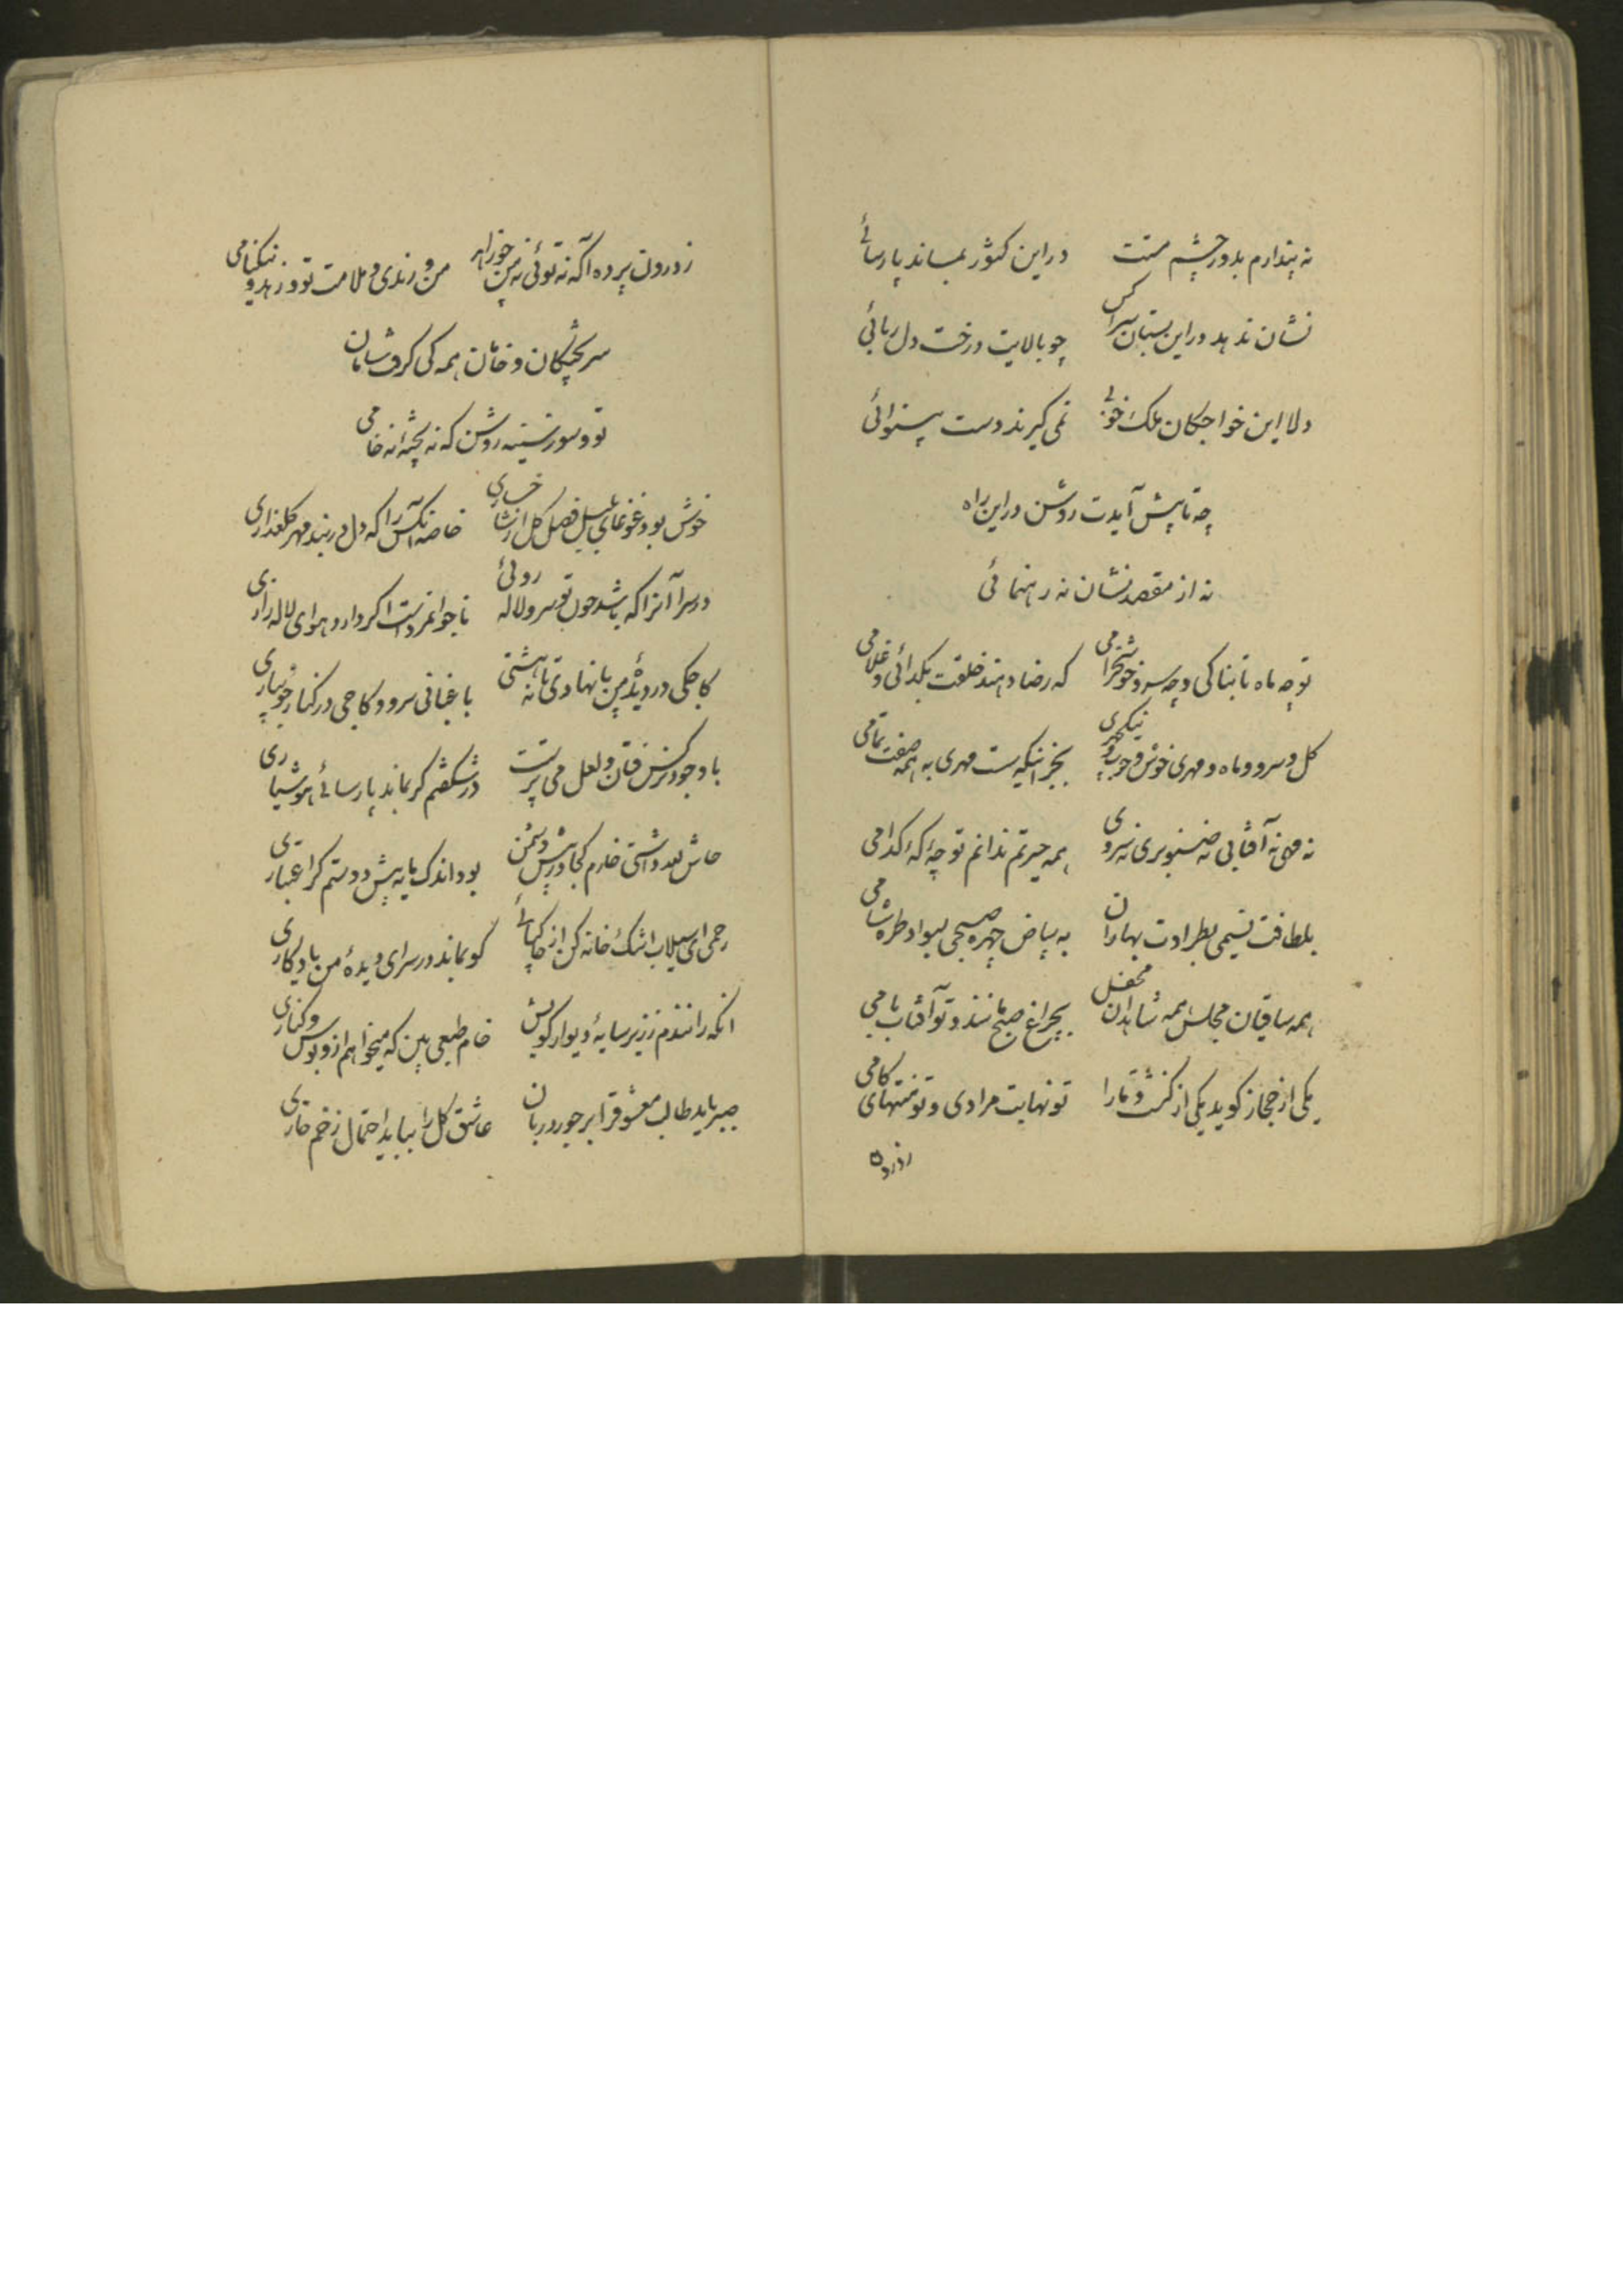 نه پندارم بدور چشم مستت در این کشور بماند پارسائے
نشان ندهد در این بستان سرا کس چو بالایت درخت دل ربائی
دلا این خواجکان ملک خوبے نمی کیرند دست بینوائی
چه تا پیش آیدت روشن در این راه
نه از مقصد نشان نه رهنمائی
تو چه ماه تابناکی و چه سرو خوشخرامی که رضا دهند خلقت بکدائی و غلامی
کل و سرو و ماه و مهری خوش و خوب و نیکچهری بجز اینکه نیست مهری به همه صفت تمامی
نه مهی نه آفتابی نه صنوبری نه سروی همه حیرتم ندانم تو چهٔ که کدامی
بلطافت نسیمی بطراوت بهاران به بیاض چهره صبحی بسواد طره شامی
همه ساقیان مجلس همه شاهدان محفل چراغ صبح مانند و تو آفتاب بامی
یکی از حجاز کوید یکی از کنشت و ما را تو نهایت مرادی و تو منتهای کامی
ز درون
ز درون پرده آکه نه توئی نه من چو زاهد من و رندی و ملامت تو و زهد و نیکنامی
سر پختکان و خامان همه کی کرفت سامان
تو و سوز سینه روشن که نه پختهٔ نه خامی
خوش بود غوغای بلبل فصل کل از شاخساری خاصه آنکس را که دل در بند مهر کلعذاری
در سرا آنرا که باشد چون تو سرو لاله روئی ناجوانمرد است اکر دارد هوای لاله زاری
کاجکی در دیدهٔ من پا نهادی تا نهشتی باغبانی سرو و کاجی در کنار جویباری
با وجود نرکس فتان و لعل می پرستت در شکفتم کر بماند پارسائے هوشیاری
حاش لله داشتی خارم کجا در پیش دشمن بود اندک مایه پیش دوستم کر اعتباری
رحمی ای سیلاب اشک خانه کن از خاکپائے کو بماند در سرای دیدهٔ من یادکاری
آنکه رانندم ز زیر سایهٔ دیوار کویش خام طمعی بین که میخواهم از و بوس و کناری
صبر باید طالب معشوق را بر جور دربان عاشق کل را بباید احتمال زخم خاری